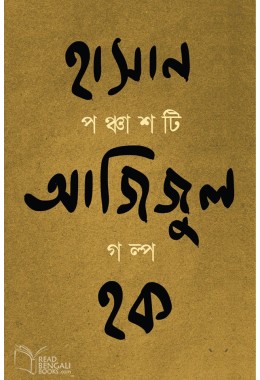 হাসান
পঞ্চাশটি
আজিজুল
গল্প
হক
READ
BENGALI
BOOKS.com